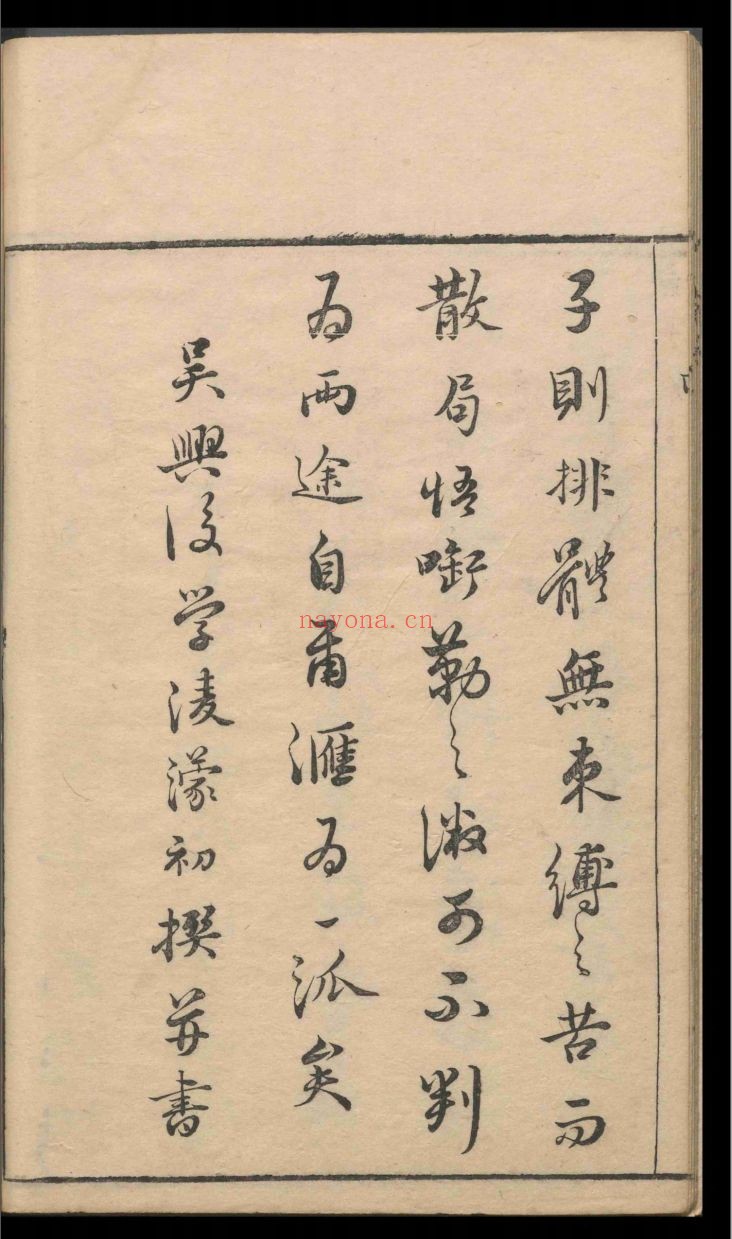 子則排體無束縛之苦而
散局悟銜勒之澂可不判
為兩途自甫滙為一派矣
吳興後学凌濛初撰并書
nayona.cn